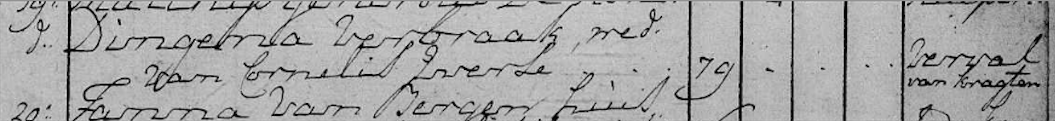 d.. Dingena Verbraak, wed.
van Cornelis Iverse . . 79 . . . Verval
van kragten
20: Janna Van Bergen, huis